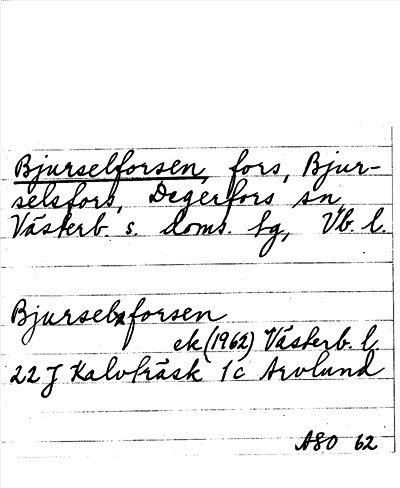 Bjurselforsen, fors, Bjur-
selsfors, Degerfors sn,
Västerb. s. doms. tg, Vb. l.
Bjurselxforsen
ek (1962) Västerb. l.
22 J Kalvträsk 1c Arvlund
ASO 62